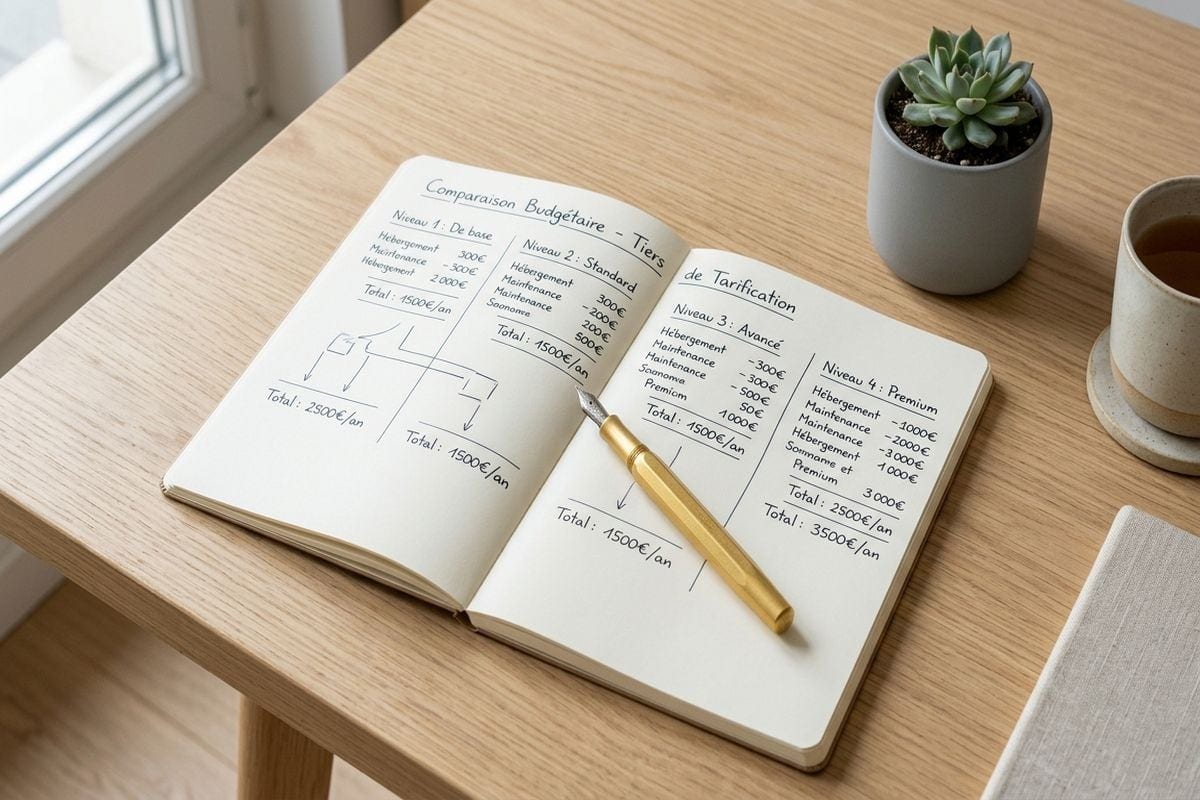 Comparaison Budgétaire - Tiers
de Tarification
Niveau 1 : De base
Hébergoment 300€
Maintenance -300€
Hebergement 2000€
Total : 1500€/an
Total : 2500€/an
Niveau 2 : Standard
Hébergement 300€
Maintenance -200€
Maintenance 200€
500€
Total : 1500€/an
Total : 1500€/an
Niveau 3 : Avancé
Hébergement -300€
Maintenance -300€
Maintenance -500€
50€
Premium 1000€
Total : 1500€/an
Total : 1500€/an
Niveau 4 : Premium
Hébergement -1000€
Maintenance -2000€
Maintenance -3000€
Hébergement 1000€
et
Premium 3000€
Total : 2500€/an
Total : 3500€/an